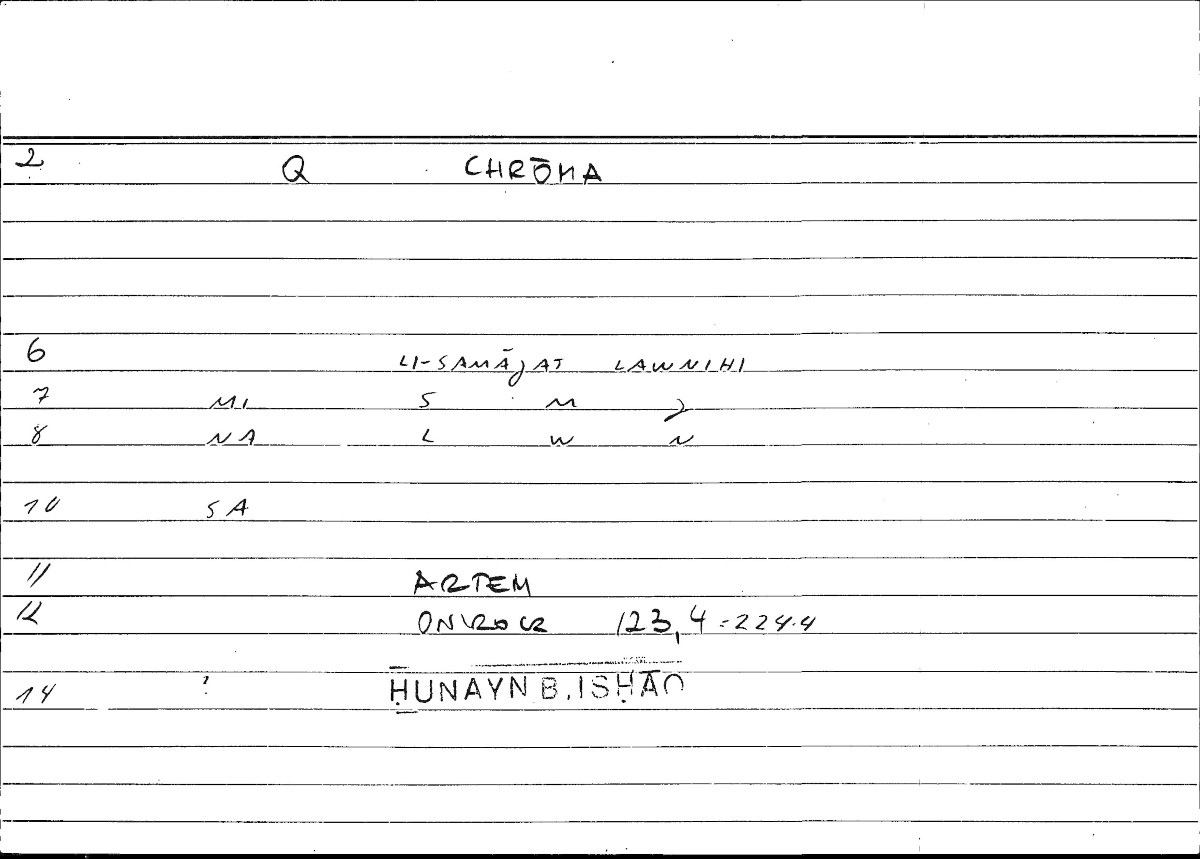 2 Q CHRŌMA
6 LI-SAMĀJAT LAWNIHI
7 MI S M J
8 NA L W N
10 SA
11 ARTEM
12 ONIROCR 123,4=224.4
14 ? ḤUNAYN B. ISḤĀQ